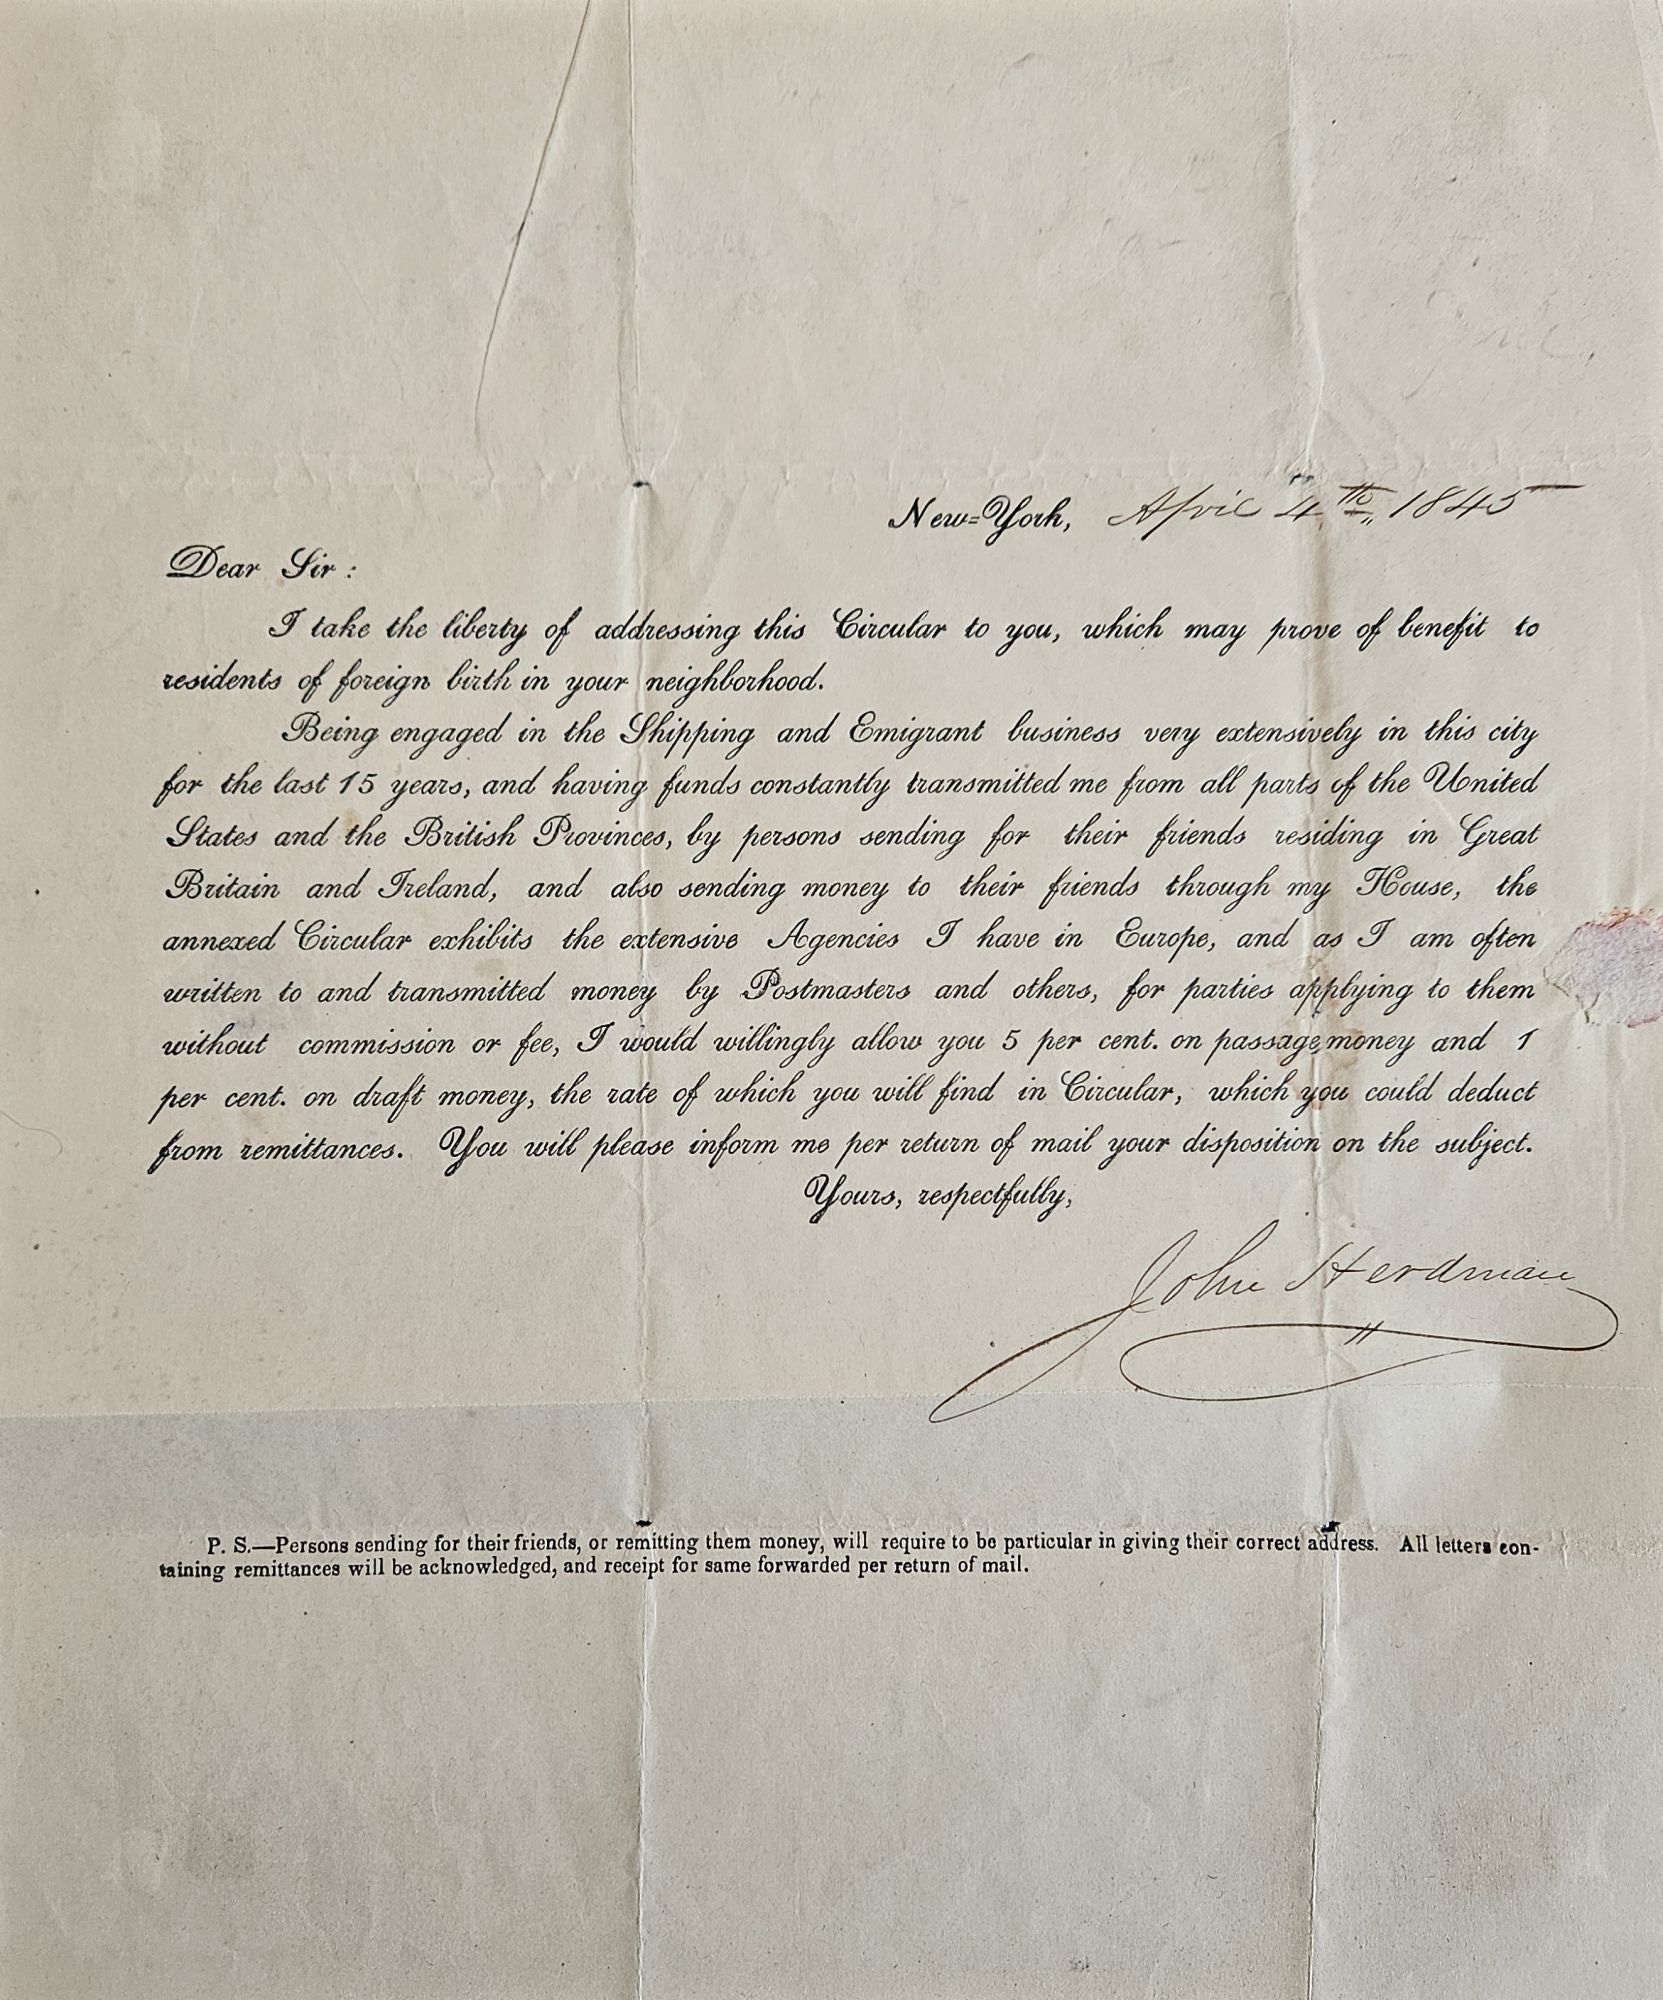 New=York, April 4th, 1845
Dear Sir :
I take the liberty of addressing this Circular to you, which may prove of benefit to
residents of foreign birth in your neighborhood.
Being engaged in the Shipping and Emigrant business very extensively in this city
for the last 15 years, and having funds constantly transmitted me from all parts of the United
States and the British Provinces, by persons sending for their friends residing in Great
Britain and Ireland, and also sending money to their friends through my House, the
annexed Circular exhibits the extensive Agencies I have in Europe, and as I am often
written to and transmitted money by Postmasters and others, for parties applying to them
without commission or fee, I would willingly allow you 5 per cent. on passage money and 1
per cent. on draft money, the rate of which you will find in Circular, which you could deduct
from remittances. You will please inform me per return of mail your disposition on the subject.
Yours, respectfully,
John Herdman
P. S.—Persons sending for their friends, or remitting them money, will require to be particular in giving their correct address. All letters con-
taining remittances will be acknowledged, and receipt for same forwarded per return of mail.